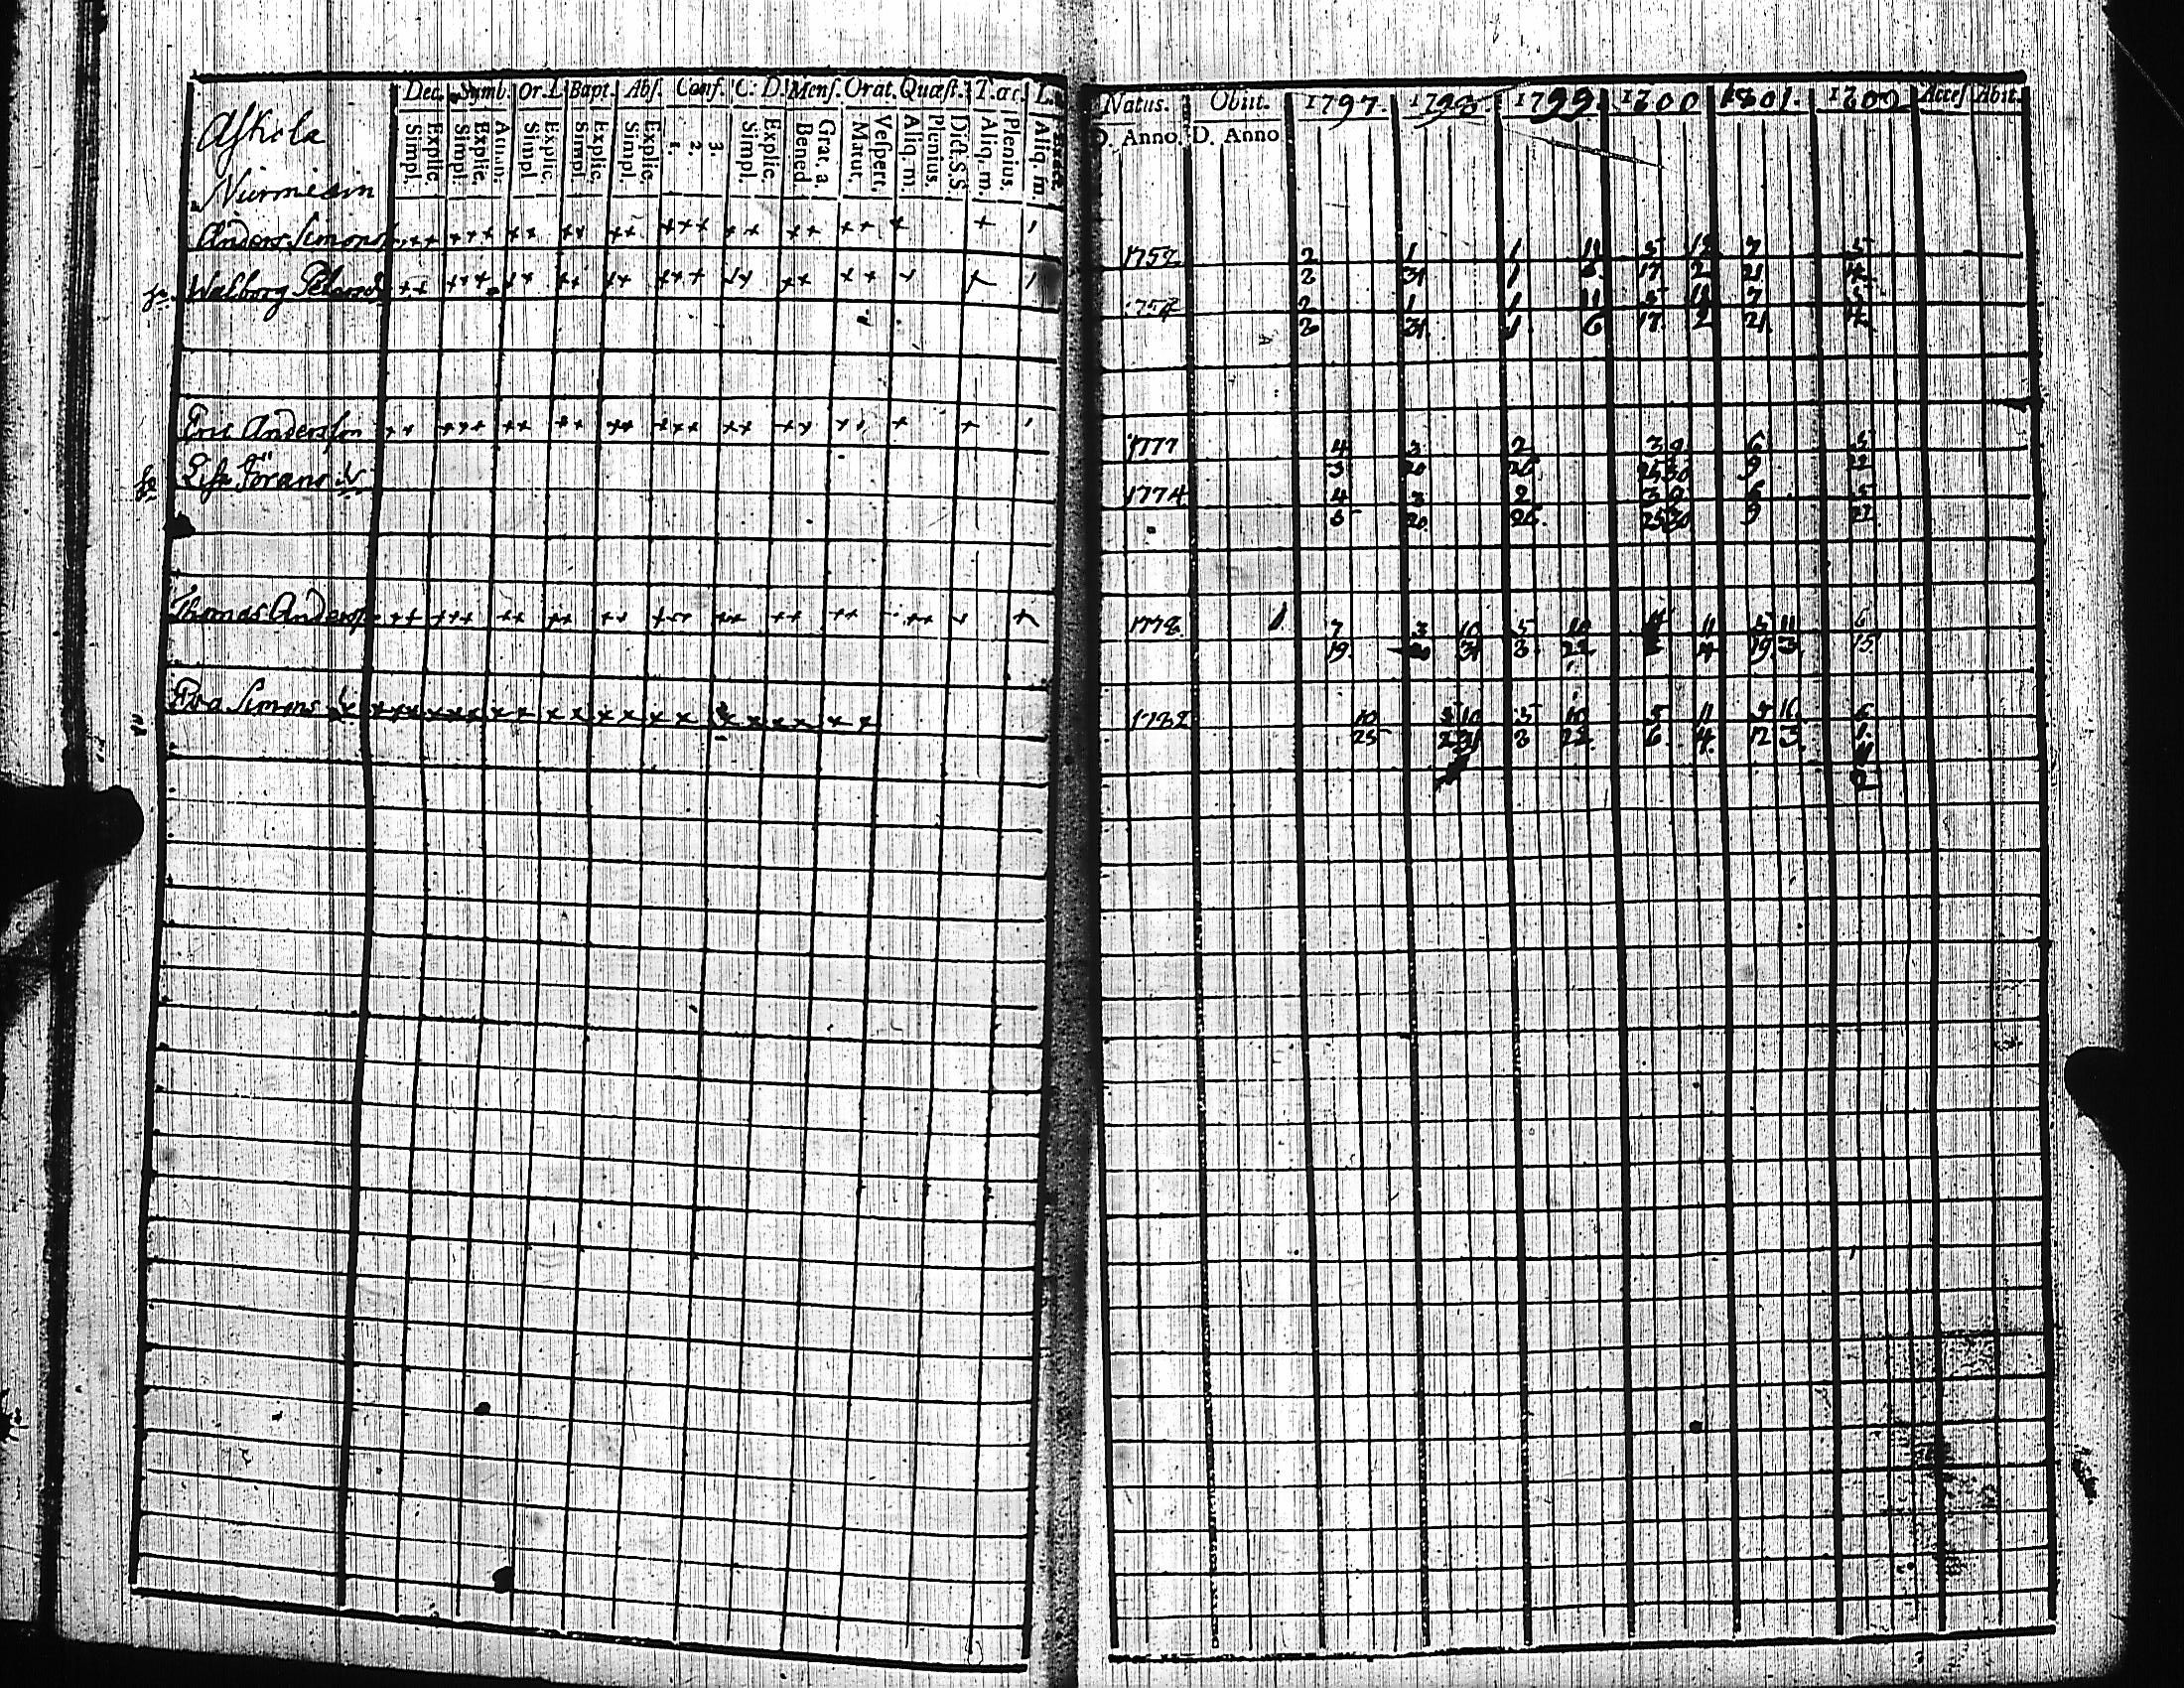 Askola
Nurmiain
Dec. Symb. Or. D Bapt. Abs. Conf. C. D. Mens. Orat. Quæst. T. ac. L.
Simpl. Explic. Simpl. Explic. Simpl. Explic. Simpl. Explic. Simpl. Explic. 1. 2. 3. Simpl. Explic. Bened. Grat. a. Matut. Vespert. Aliq. m. Plenius. Dict. S.S. Aliq. m. Plenius. Aliq. m.
Natus. Obiit. 1797. 1798. 1799. 1800 1801. 1802 Acces Abiit.
D. Anno. D. Anno
Anders Simonss 1752 2 1 1 11 5 12 7 5
2 31 1 6 17 2 21 4
fr. Walborg 2 1 1 11 5 12 7 5
2 31 1 6 17 2 21 4
Eric Andersson 1777 4 3 2 3 9 6 5
3 20 26 25 30 9 22
fr. Lisa Görans dr 1774 4 3 2 3 9 6 5
5 20 26 25 30 9 22
Thomas Anderss 1778 7 3 10 5 10 11 5 11 6
19 20 31 3 22 4 19 3 15
Simons dr 1782 10 3 10 5 10 5 11 5 11 6
25 31 3 22 6 4 12 3 1